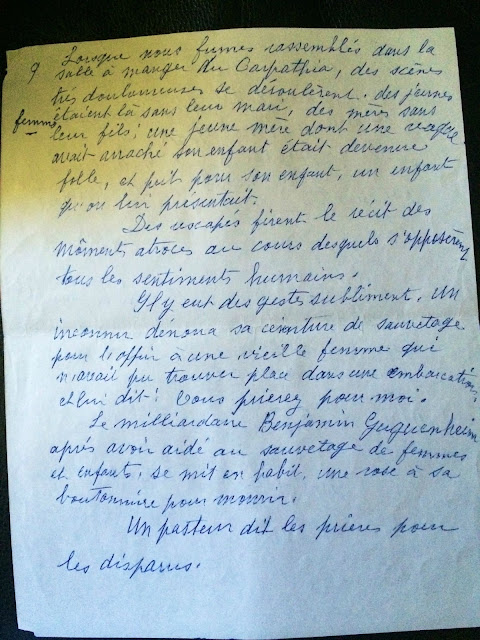 9 Lorsque nous fumes rassemblés dans la
salle à manger du Carpathia, des scènes
très douloureuses se déroulèrent. des jeunes
femme étaient là sans leur mari, des mères sans
leur fils; une jeune mère dont une vague
avait arraché son enfant était devenue
folle, et prit pour son enfant, un enfant
qu'on lui présentait.
Des rescapés firent le récit des
môments atroces au cours desquels s'opposèrent
tous les sentiments humains.
Il y eut des gestes subliment. Un
inconnu dénoua sa ceinture de sauvetage
pour l'offrir à une vieille femme qui
n'avait pu trouver place dans une embarcation,
et lui dit: Vous prierez pour moi.
Le milliardaire Benjamin Guguenheim
après avoir aidé au sauvetage de femmes
et enfants, se mit en habit, une rose à sa
boutonnière pour mourir.
Un pasteur dit les prières pour
les disparus.